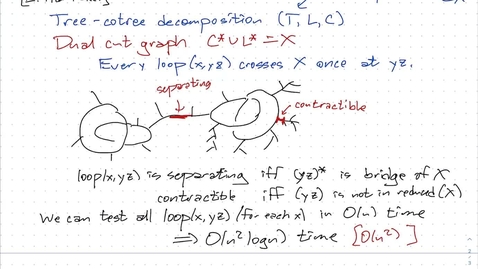 Tree-cotree decomposition (T, L, C)
Dual cut graph C* ∪ L* = X
Every loop(x,yz) crosses X once at yz.
separating
contractible
loop(x,yz) is separating iff (yz)* is bridge of X
contractible iff (yz) is not in reduced(X)
We can test all loop(x,yz) (for each x) in O(n) time
⟹ O(n² log n) time [O(n²)]